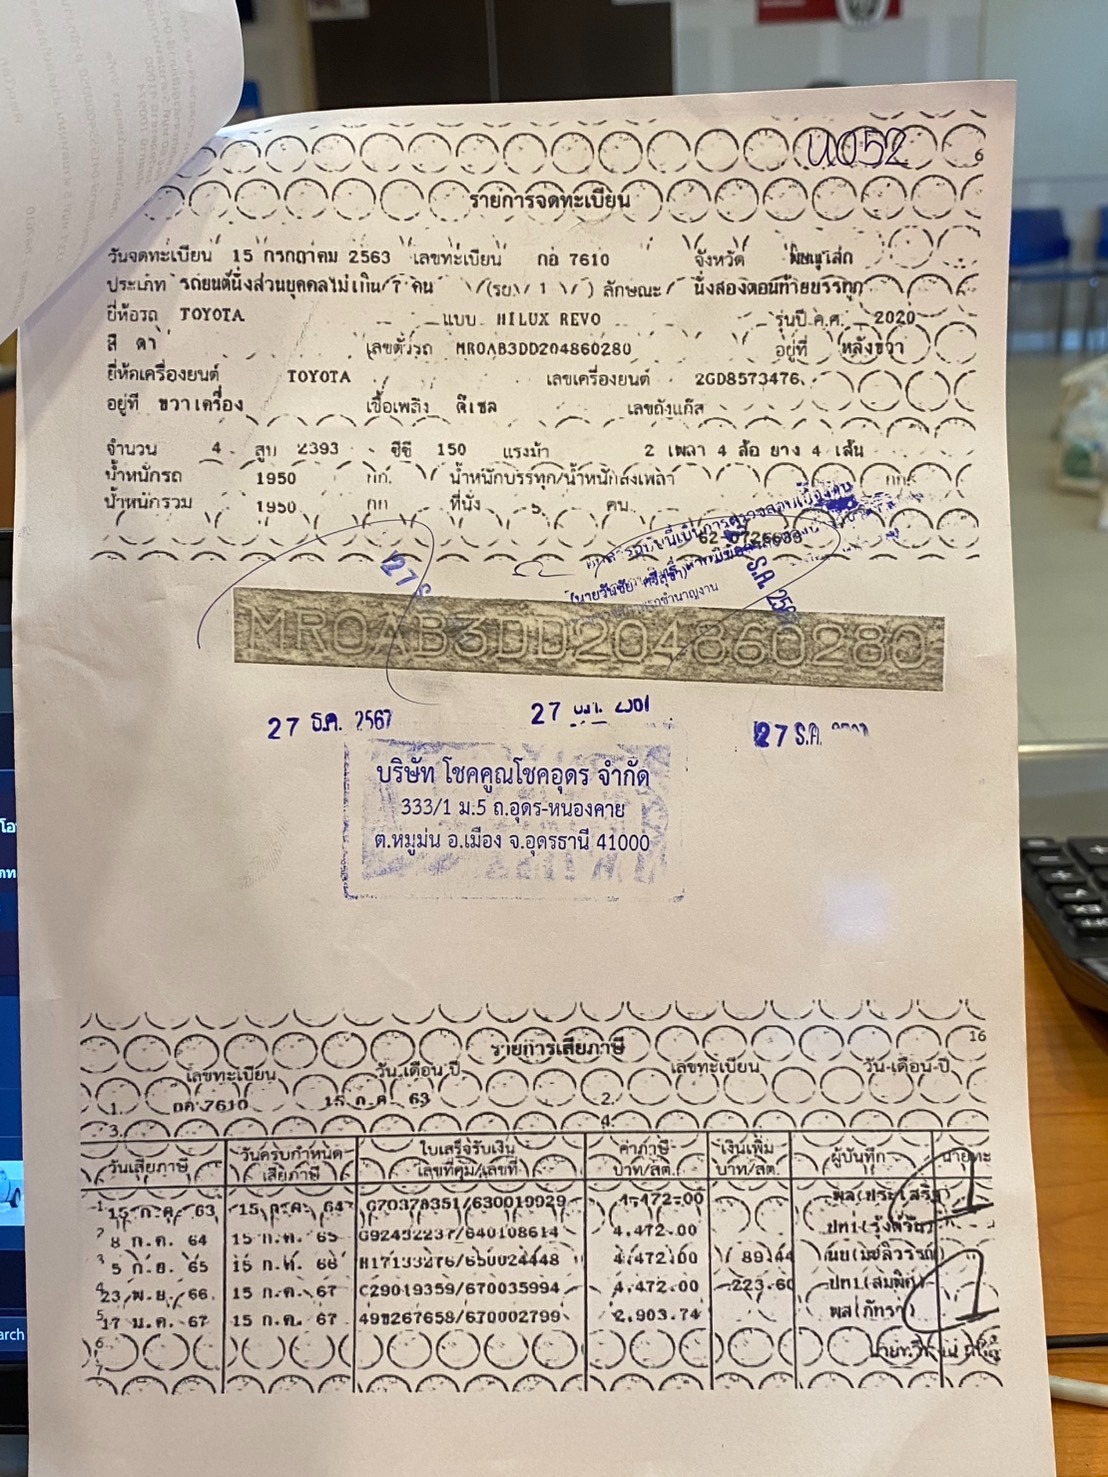 น052
6
รายการจดทะเบียน
วันจดทะเบียน 15 กรกฎาคม 2563 เลขทะเบียน กอ 7610 จังหวัด พิษณุโลก
ประเภท รถยนต์นั่งส่วนบุคคลไม่เกิน 7 คน (รย. 1 ) ลักษณะ นั่งสองตอนท้ายบรรทุก
ยี่ห้อรถ TOYOTA แบบ HILUX REVO รุ่นปี ค.ศ. 2020
สี ดำ เลขตัวรถ MR0AB3DD204860280 อยู่ที่ หลังขวา
ยี่ห้อเครื่องยนต์ TOYOTA เลขเครื่องยนต์ 2GD8573476
อยู่ที่ ขวาเครื่อง เชื้อเพลิง ดีเซล เลขถังแก๊ส
จำนวน 4 สูบ 2393 ซีซี 150 แรงม้า 2 เพลา 4 ล้อ ยาง 4 เส้น
น้ำหนักรถ 1950 กก. น้ำหนักบรรทุก/น้ำหนักลงเพลา กก.
น้ำหนักรวม 1950 กก ที่นั่ง 5 คน
62-0726633
MR0AB3DD204860280
27 ธ.ค. 2567 27 27 ธ.ค.
บริษัท โชคคูณโชคอุดร จำกัด
333/1 ม.5 ถ.อุดร-หนองคาย
ต.หมูม่น อ.เมือง จ.อุดรธานี 41000
16
รายการเสียภาษี
เลขทะเบียน วัน-เดือน-ปี เลขทะเบียน วัน-เดือน-ปี
1. กอ 7610 15 ก.ค. 63 2.
3. 4.
วันเสียภาษี วันครบกำหนดเสียภาษี ใบเสร็จรับเงิน เลขที่คุม/เลขที่ ค่าภาษี บาท/สต. เงินเพิ่ม บาท/สต. ผู้บันทึก
1 15 ก.ค. 63 15 ก.ค. 64 G70378351/630019929 4,472.00
2 8 ก.ค. 64 15 ก.ค. 65 G92432237/640108614 4,472.00
3 5 ก.ย. 65 15 ก.ค. 66 H17133276/650024448 4,472.00 89.44
4 23 พ.ย. 66 15 ก.ค. 67 C29019359/670035994 4,472.00 223.60 ปท1(สมพิศ)
5 17 ม.ค. 67 15 ก.ค. 67 49267658/670002799 2,903.74 พล(ภัทรา)
6
7